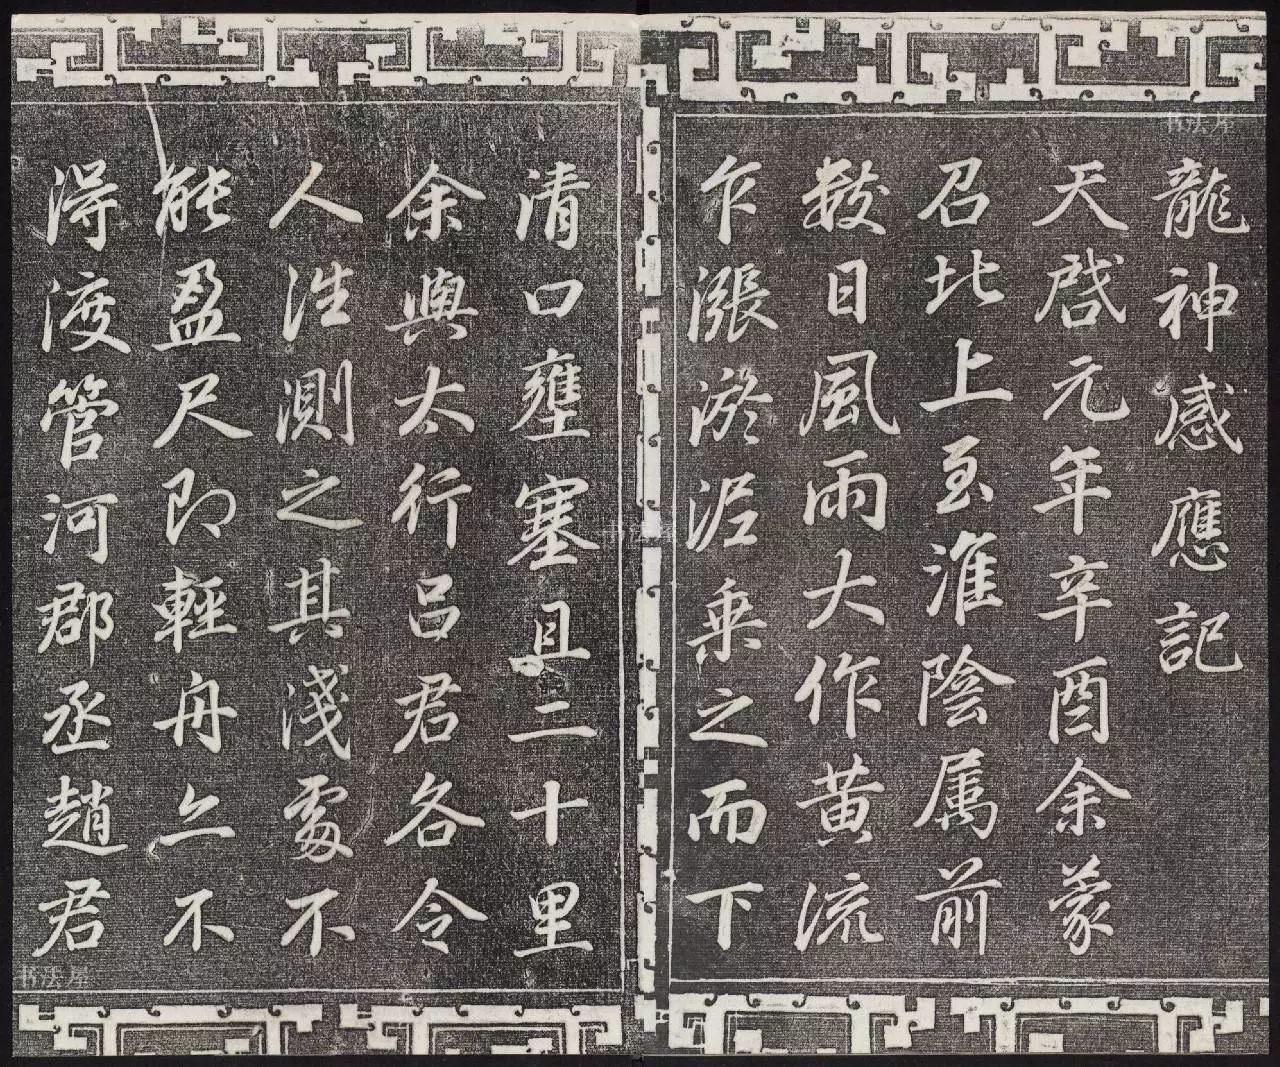 龍神感應記
天啓元年辛酉余蒙
召北上至淮陰属前
數日風雨大作黄流
乍漲淤泥乗之而下
清口壅塞且二十里
余與太行吕君各令
人往測之其淺處不
能盈尺即輕舟亦不
得渡管河郡丞趙君
书法屋
书法屋
书法屋